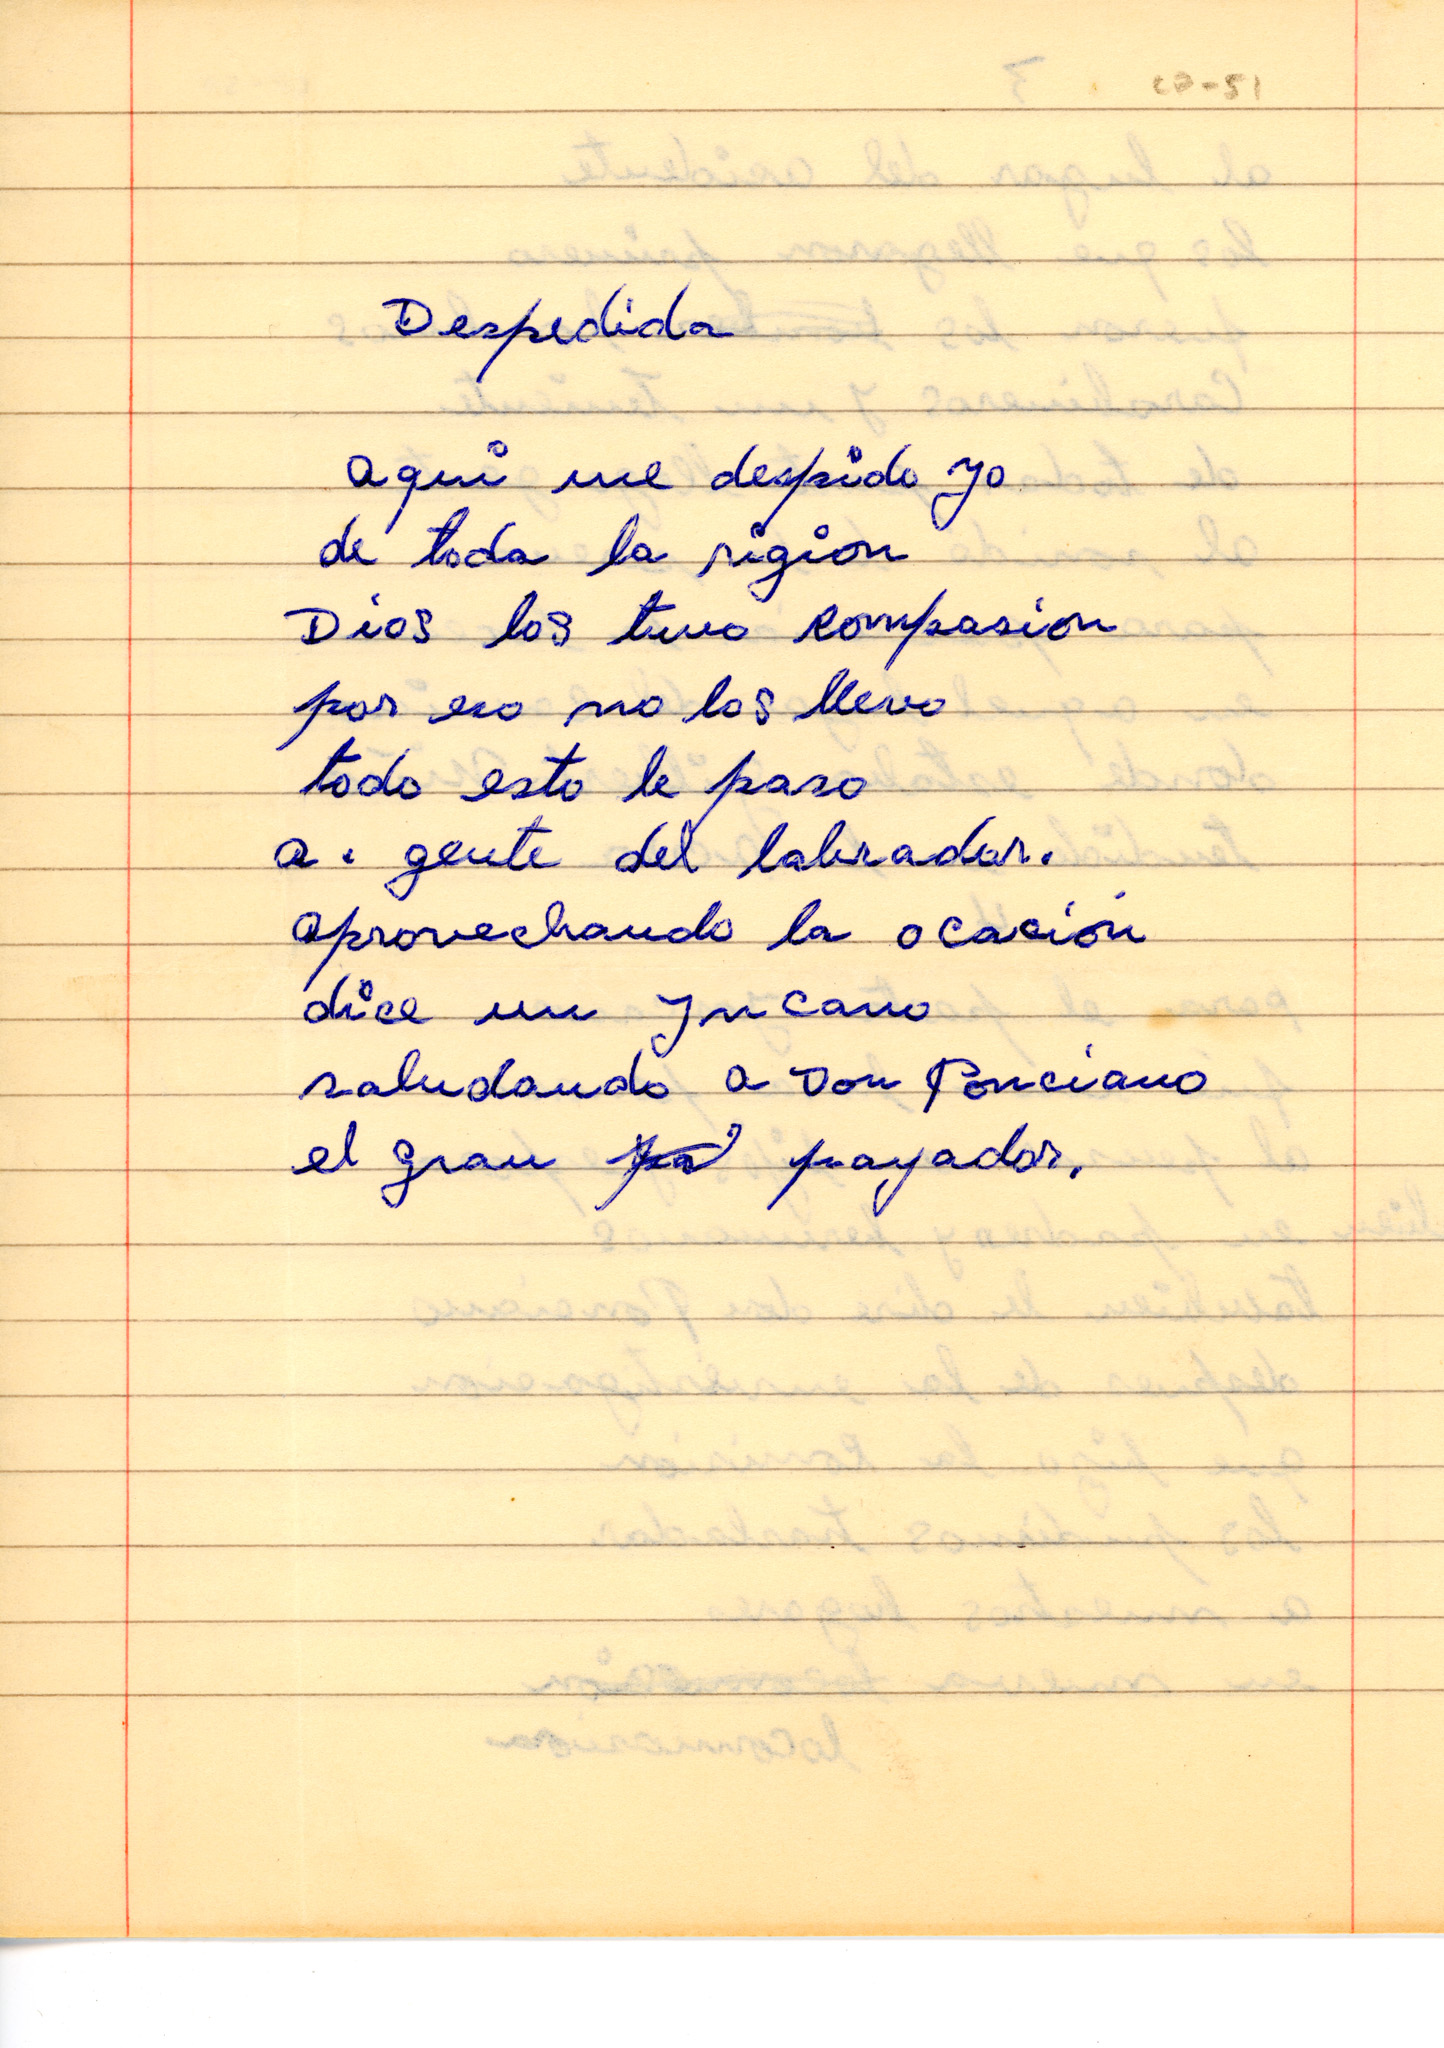 Despedida
aqui me despido yo
de toda la rigion
Dios los tuvo compasion
por eso no los llevo
todo esto le paso
a. gente del labrador.
aprovechando la ocación
dice un Yncano
saludando a Don Ponciano
el gran payador.